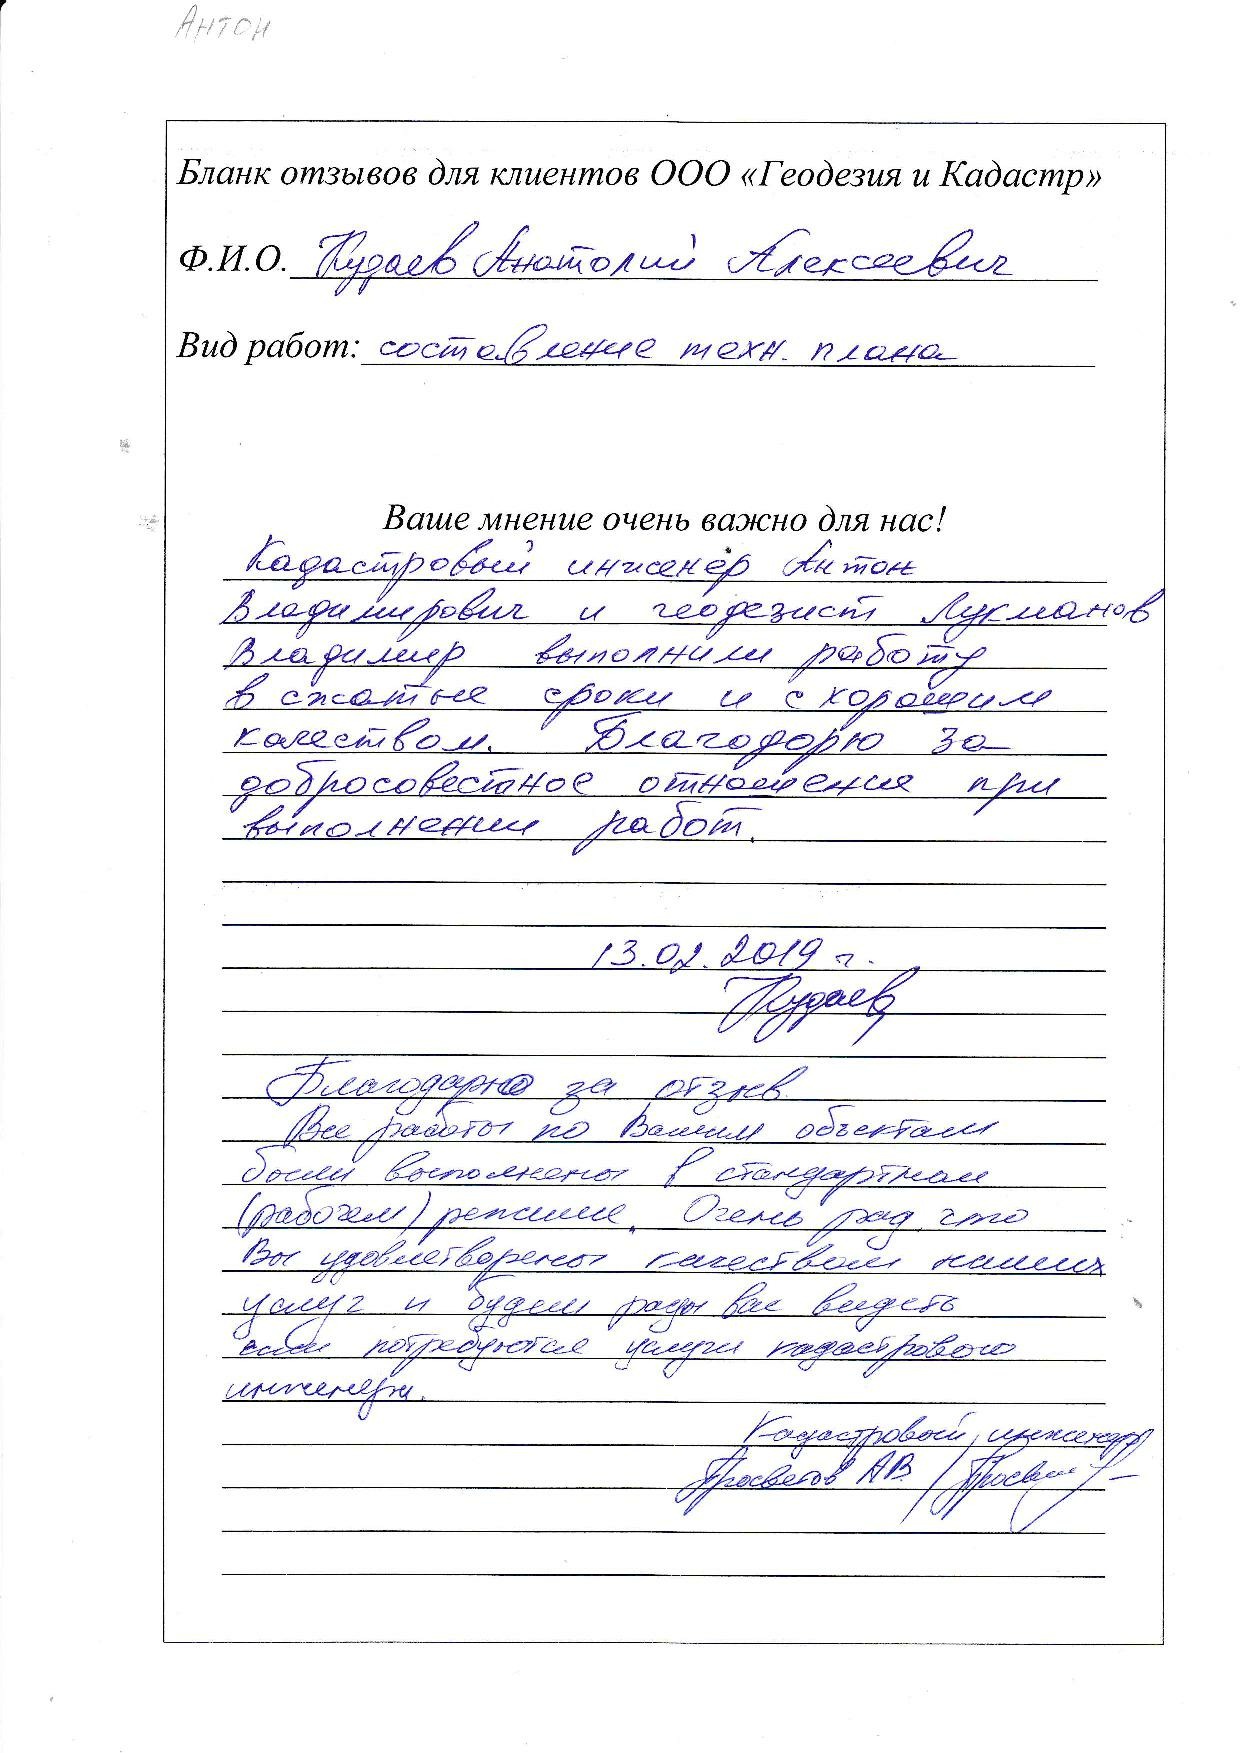 Антон
Бланк отзывов для клиентов ООО «Геодезия и Кадастр»
Ф.И.О. Кудаев Анатолий Алексеевич
Вид работ: составление техн. плана
Ваше мнение очень важно для нас!
Кадастровый инженер Антон
Владимирович и геодезист Лукманов
Владимир выполнили работу
в сжатые сроки и с хорошим
качеством. Благодорю за
добросовестное отношения при
выполнении работ.
13.02.2019 г.
Кудаев
Благодарю за отзыв
Все работы по Вашим объектам
были выполнены в стандартном
(рабочем) режиме. Очень рад, что
Вы удовлетворены качеством наших
услуг и будем рады вас видеть
если потребуются услуги кадастрового
инженера.
Кадастровый инженер
Просветов А.В. /